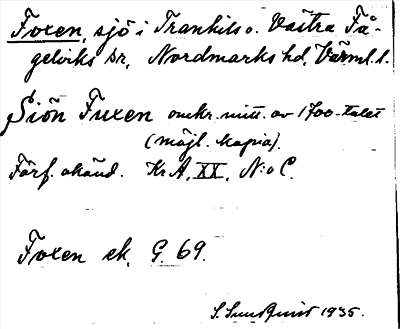 Foxen, sjö i Trankils o. Västra Få-
gelviks sr, Nordmarks hd, Värml. l.
Siön Fuxen omkr. mitt. av 1700-talet
(möjl. kopia).
Förf. okänd. Kr A, XX, N:o C.
Foxen ek. G. 69.
S. Sundquist 1935.